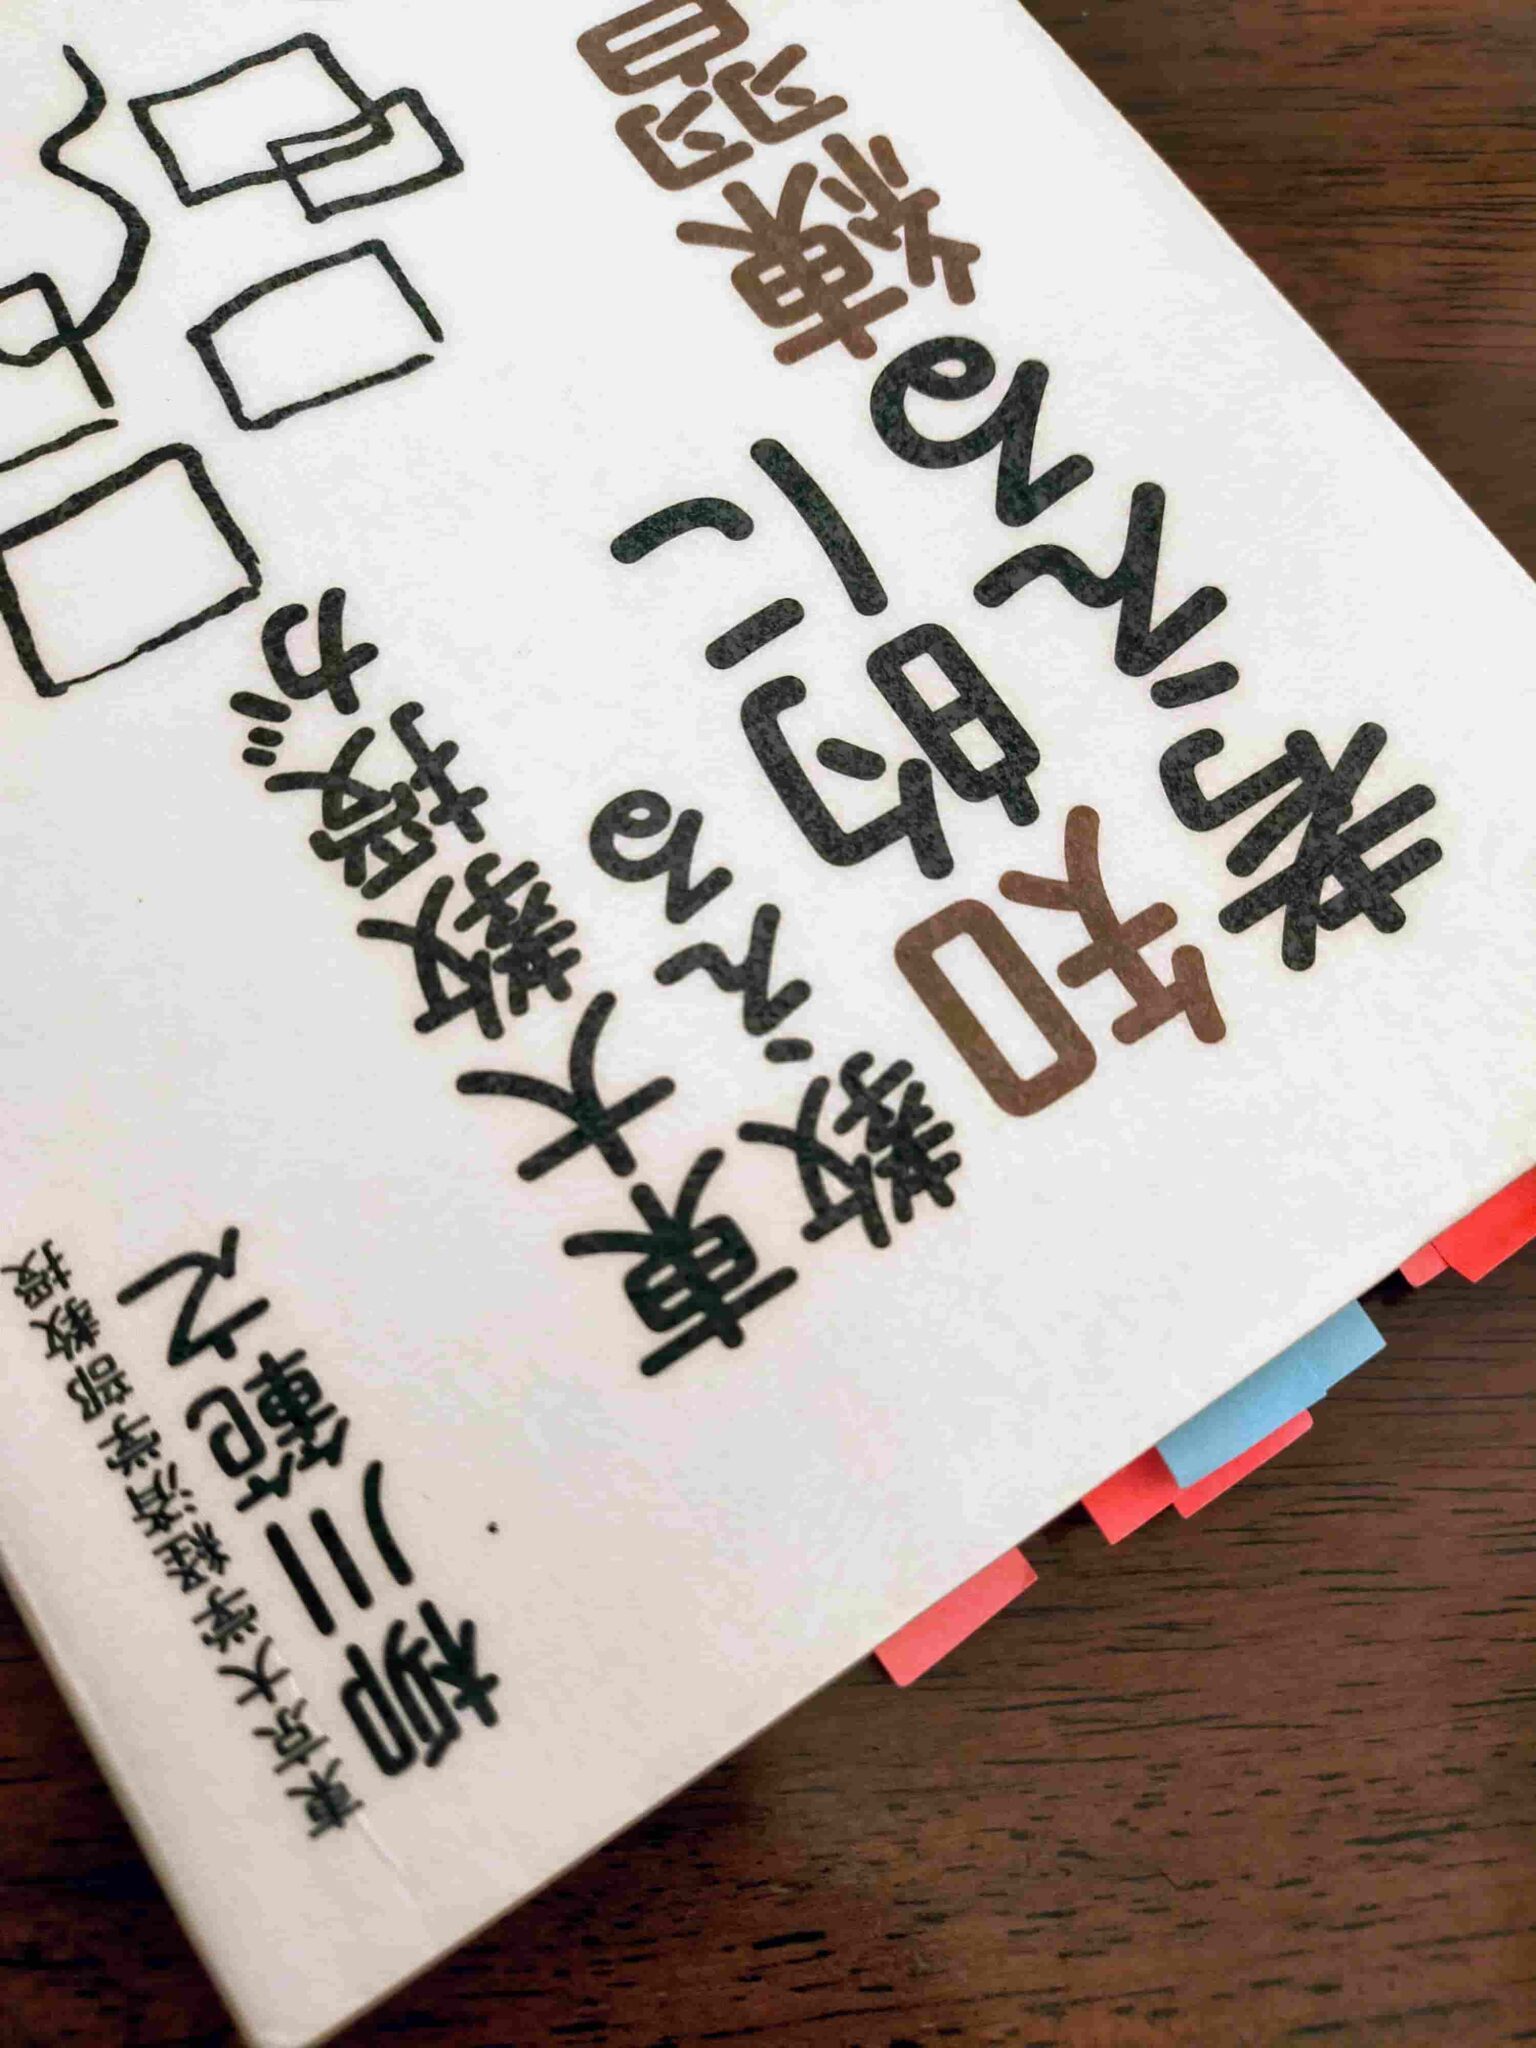 東京大学経済学部教授
柳川範之
東大教授が
教える
知的に
考える練習